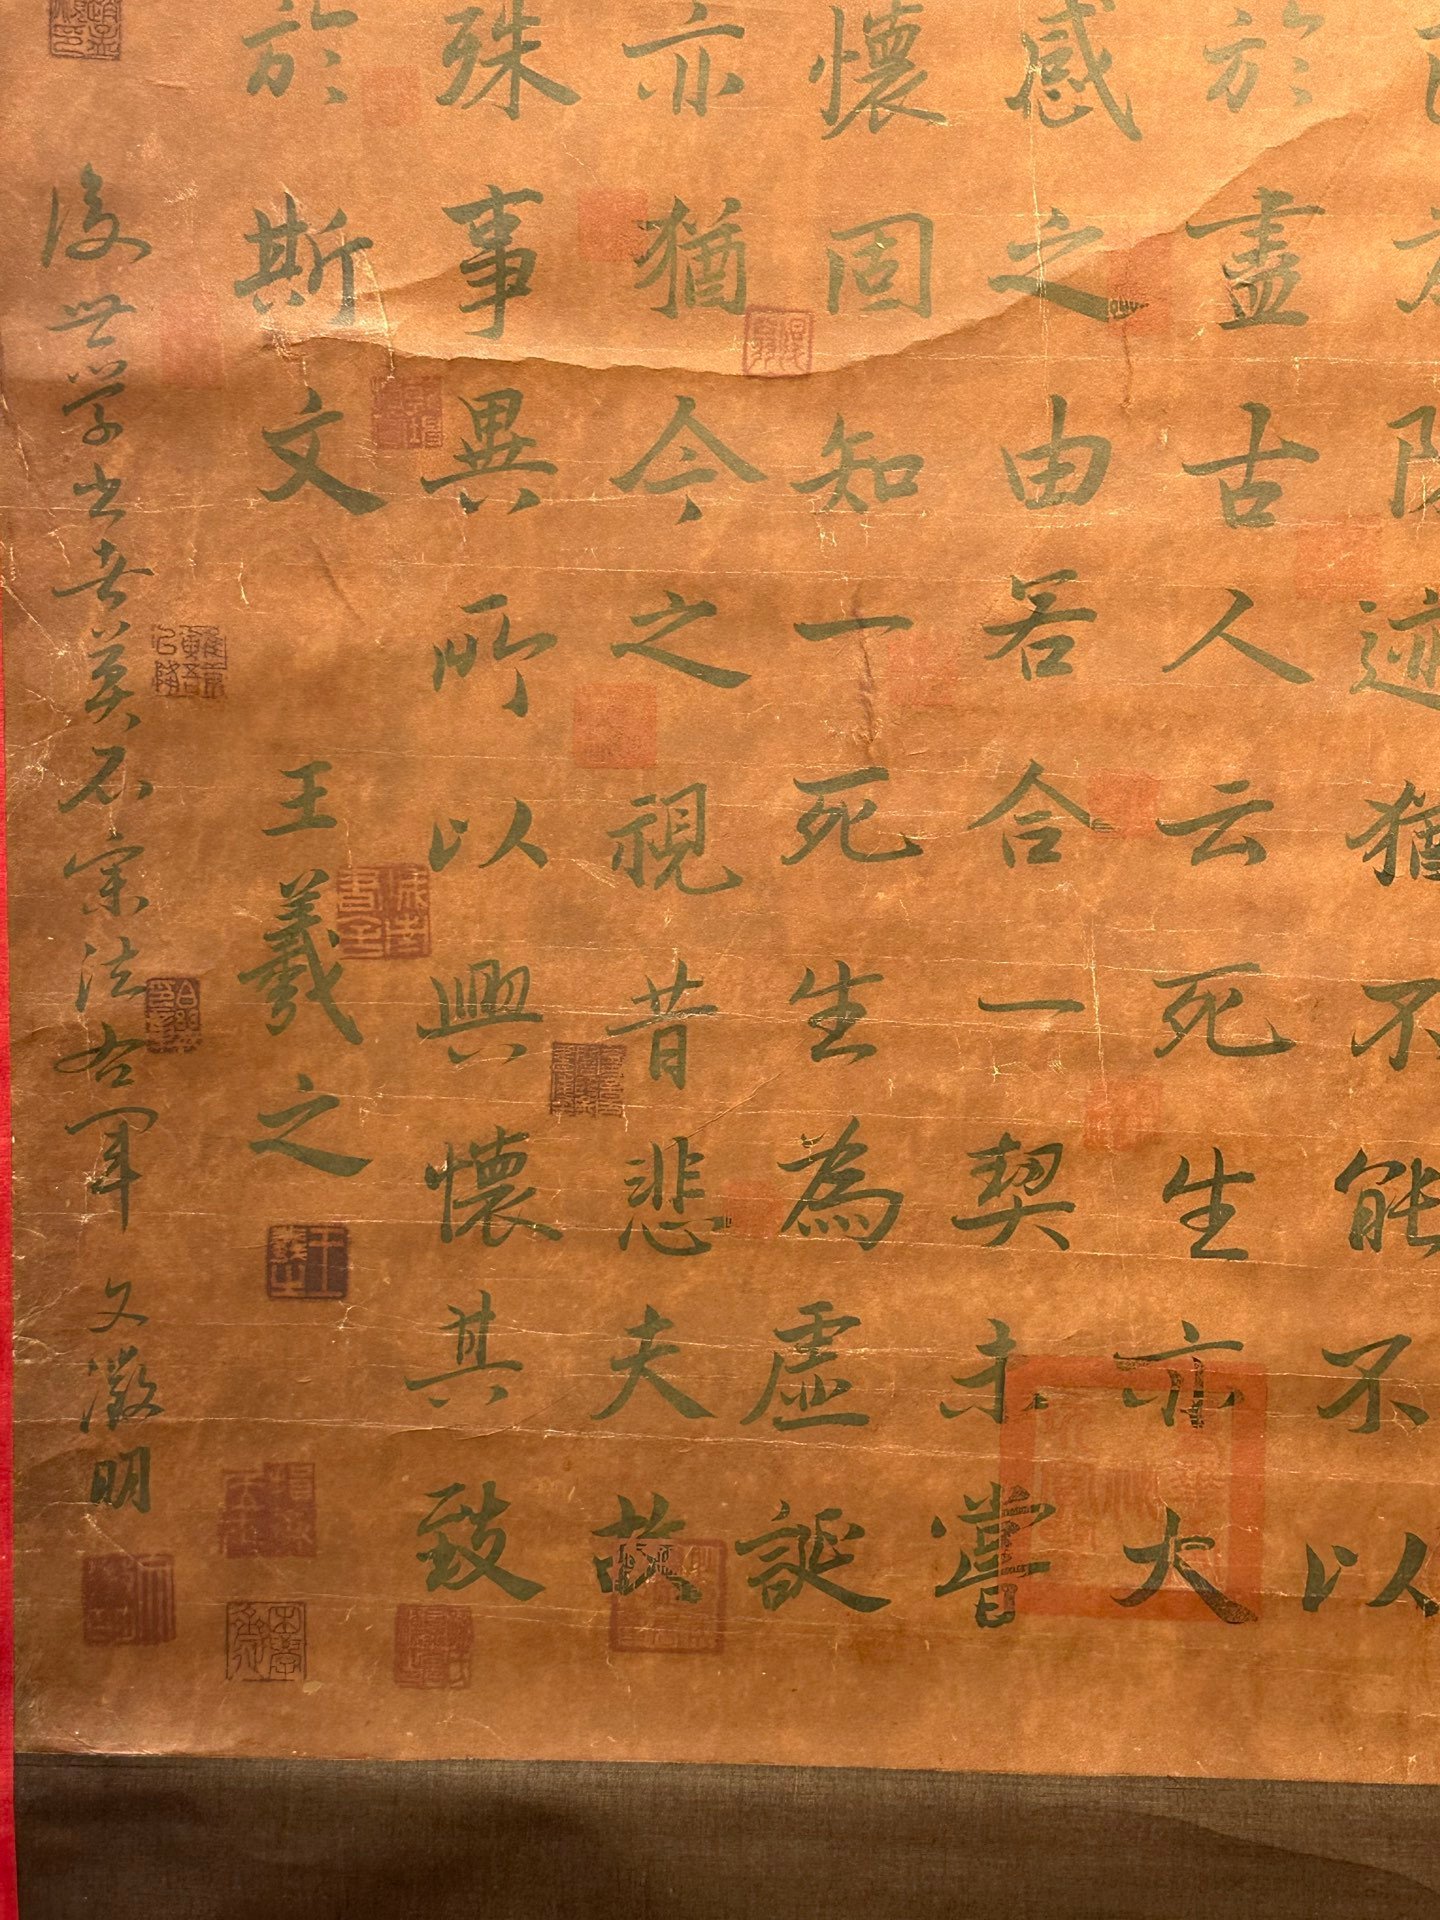 迹猶不能不以
於盡古人云死生亦大
感之由若合一契未嘗
懷固知一死生為虛誕
亦猶今之視昔悲夫故
殊事異所以興懷其致
於斯文 王羲之
王羲之
後世學書者莫不宗法右軍 文徵明